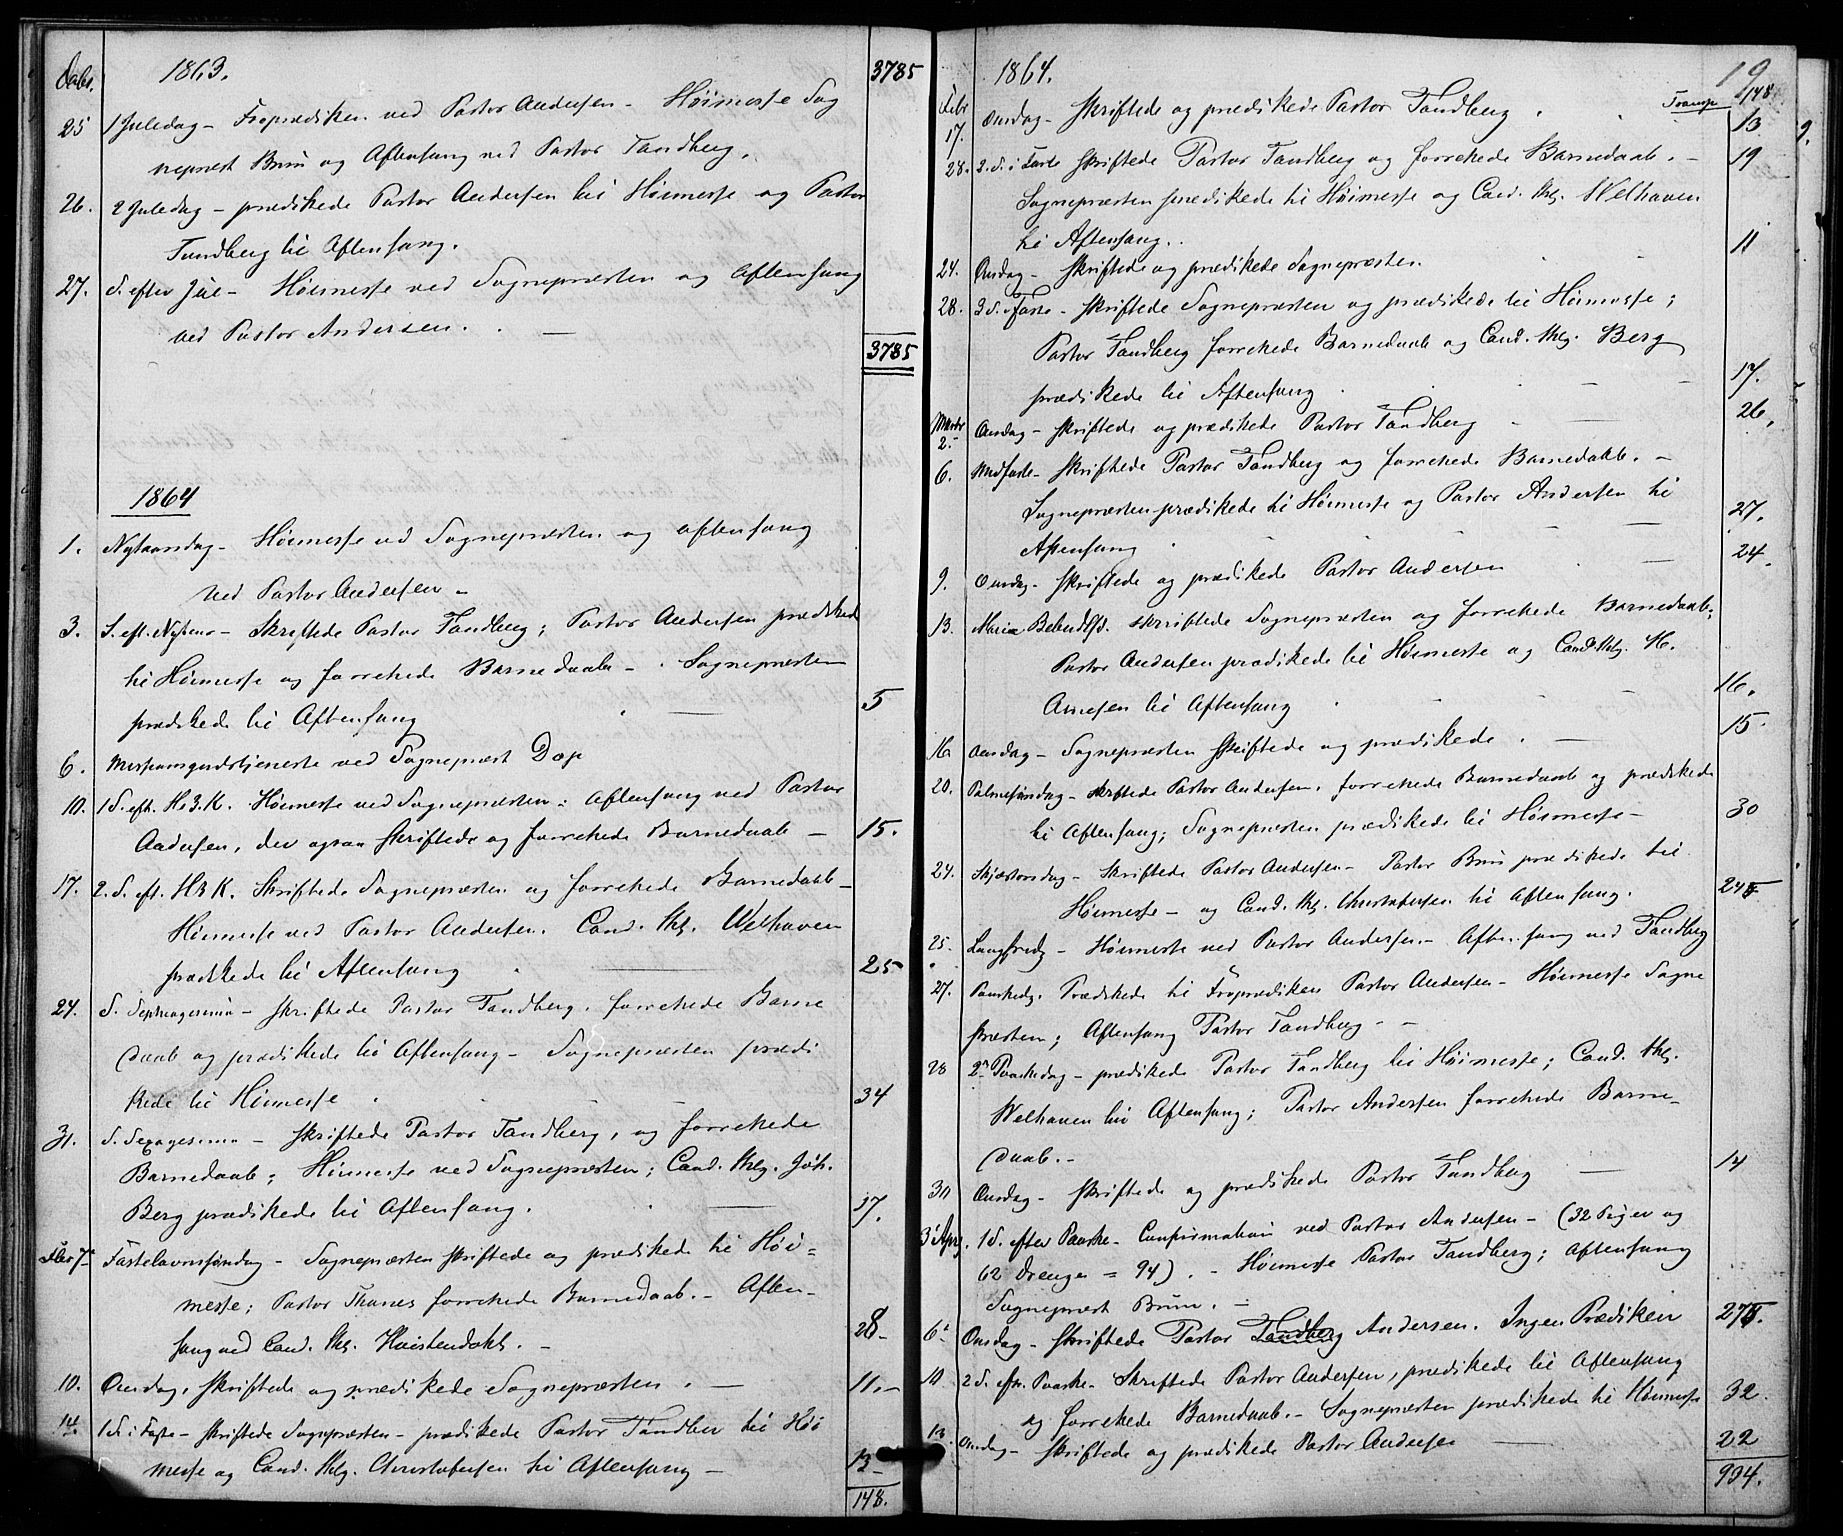 1863.
3785
25 1 Juledag – Froprædiken ved Pastor Andersen – Høimesse Sog
nepræst Bruu og Aftensang ved Pastor Tandberg.
26. 2 Juledag – prædikede Pastor Andersen til Høimesse og Pastor
Tandberg til Aftensang.
27. S. efter Jul – Høimesse ved Sognepræsten og Aftensang
ved Pastor Andersen. –
3785
1864
1. Nytaarsdag – Høimesse ved Sognepræsten og Aftensang
ved Pastor Andersen –
3. S. eft. Nytaar – Skriftede Pastor Tandberg; Pastor Andersen prædikede
til Høimesse og forrettede Barnedaab – Sognepræsten
prædikede til Aftensang – 5
6. Missionsgudstjeneste ved Sognepræst
10. 1 S. eft. H.3.K. Høimesse ved Sognepræsten; Aftensang ved Pastor
Andersen, der ogsaa skriftede og forrettede Barnedaab – 15.
17. 2. S. eft. H3K. Skriftede Sognepræsten og forrettede Barnedaab –
Høimesse ved Pastor Andersen. Cand. thl. Welhaven
prædikede til Aftensang – 25
24. S. Septuagesima – skriftede Pastor Tandberg, forrettede Barne
daab og prædikede til Aftensang – Sognepræsten prædi
kede til Høimesse. 34
31. S. Sexagesima – skriftede Pastor Tandberg, og forrettede
Barnedaab; Høimesse ved Sognepræsten; Cand. thlg. Joh.
Berg prædikede til Aftensang. – 17.
Febr 7 Fastelavnssøndag – Sognepræsten skriftede og prædikede til Høi=
messe; Pastor Thanes forrettede Barnedaab. – Aften-
sang ved Cand. thl. – 28 –
10. Onsdag. skriftede og prædikede Sognepræsten. – 11. –
14. 1 S. i Faste – skriftede Sognepræsten – prædikede Pastor Tandber til Høi
messe og Cand. thlg. Christophersen til Aftensang – 13 –
148.
1864. 19
Transp 148
Febr 17. Onsdag – skriftede og prædikede Pastor Tandberg. 13
28. 2. S. i Faste skriftede Pastor Tandberg og forrettede Barnedaab. – 19
Sognepræsten prædikede til Høimesse og Cand. thlg. Welhaven
til Aftensang.
24. Onsdag – skriftede og prædikede Sognepræsten. 11
28. 3 S. i Faste – skriftede Sognepræsten og prædikede til Høimesse;
Pastor Tandberg forrettede Barnedaab og Cand. thlg. Berg
prædikede til Aftensang – 17.
Marts 2. – Onsdag – skriftede og prædikede Pastor Tandberg – 26.
6. Midfaste – skriftede Pastor Tandberg og forrettede Barnedaab. –
Sognepræsten prædikede til Høimesse og Pastor Andersen til
Aftensang – 27.
9. Onsdag – skriftede og prædikede Pastor Andersen – 24.
13. Mariæ Bebudelsd. skriftede Sognepræsten og forrettede Barnedaab;
Pastor Andersen prædikede til Høimesse og Cand. thlg. M.
Arnesen til Aftensang – 16.
16 Onsdag – Sognepræsten skriftede og prædikede. – 15.
20. Palmesøndag – skriftede Pastor Andersen, forrettede Barnedaab og prædikede
til Aftensang; Sognepræsten prædikede til Høimesse – 30
24. Skjærtorsdag – skriftede Pastor Andersen – Pastor Bruu prædikede til
Høimesse – og Cand. thlg. Christophersen til Aftensang.
25. Langfredg – Høimesse ved Pastor Andersen – Aftensang ved Tandberg
27. Paaskedg. Prædikede til Froprædiken Pastor Andersen – Høimesse Sogne
præsten; Aftensang Pastor Tandberg – –
28 2n Paaskedag – prædikede Pastor Tandberg til Høimesse; Cand. thlg.
Welhaven til Aftensang; Pastor Andersen forrettede Barne-
daab. –
30 Onsdag – skriftede og prædikede Pastor Tandberg – 14
3 Apr. 1 S. efter Paaske – Confirmation ved Pastor Andersen – (32 Piger og
62 Drenge = 94). – Høimesse Pastor Tandberg; Aftensang
Sognepræst Bruu. –
6 Onsdag – skriftede Pastor Tandberg Andersen. Ingen Prædiken
10 2 S. eft. Paaske – Skriftede Pastor Andersen, prædikede til Aftensang
og forrettede Barnedaab. – Sognepræsten prædikede til Høimesse 32
13. Onsdag – skriftede og prædikede Pastor Andersen – 22
934.